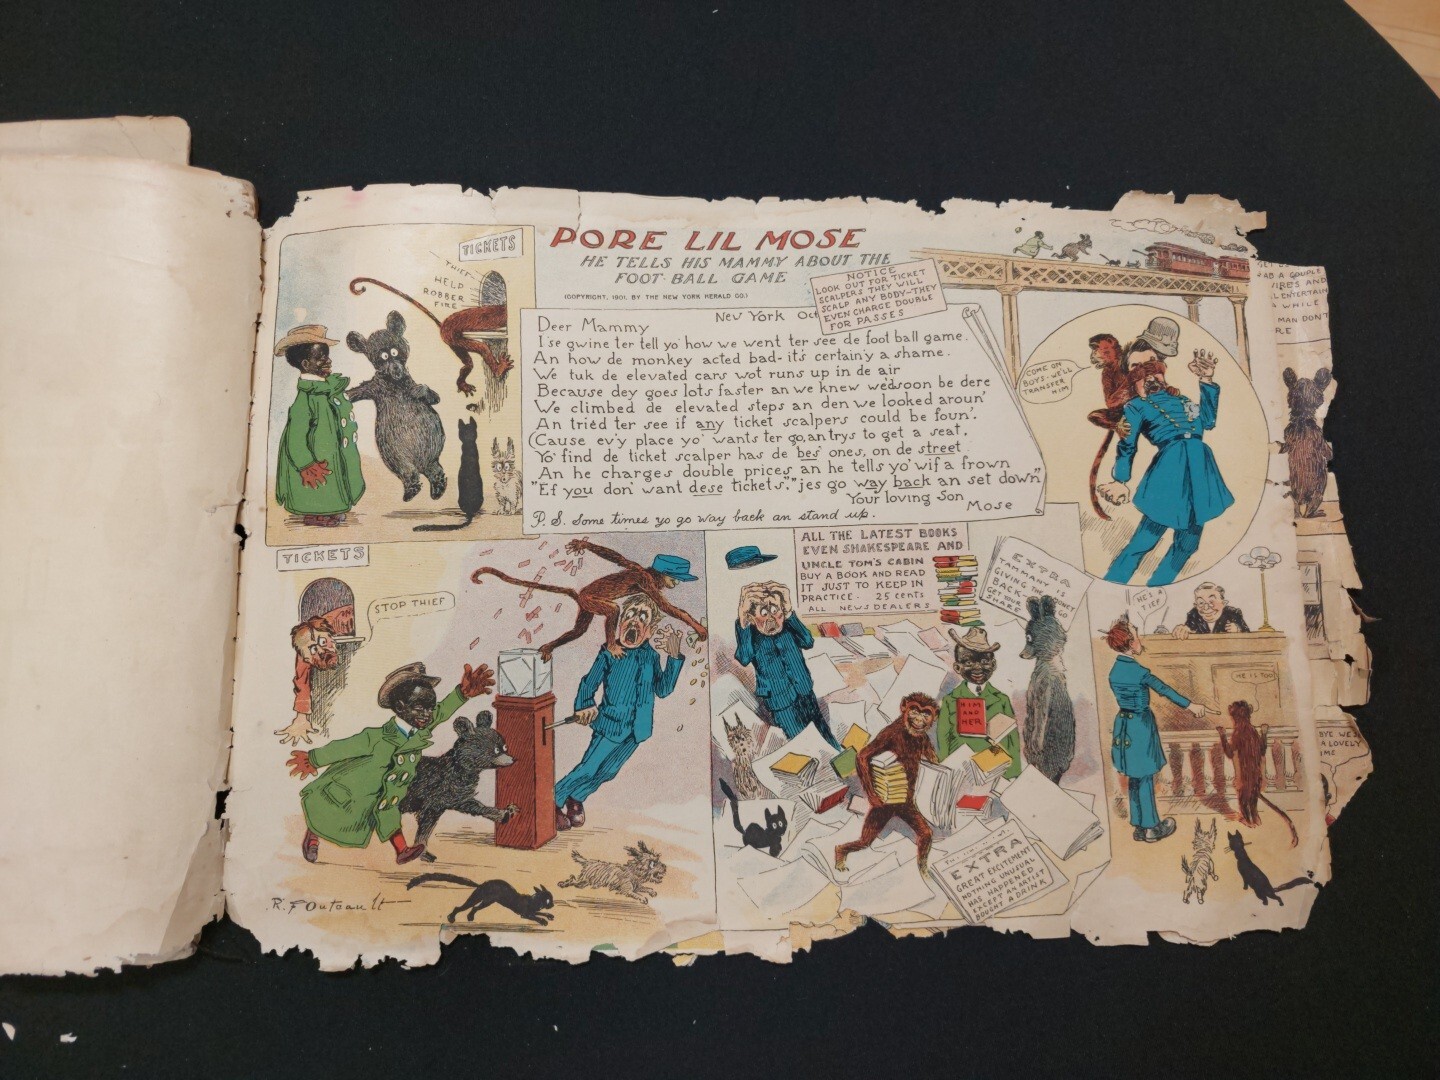 TICKETS
THIEF
HELP
ROBBER
FIRE
PORE LIL MOSE
HE TELLS HIS MAMMY ABOUT THE
FOOT BALL GAME
(COPYRIGHT, 1901, BY THE NEW YORK HERALD CO.)
NOTICE
LOOK OUT FOR TICKET
SCALPERS THEY WILL
SCALP ANY BODY-THEY
EVEN CHARGE DOUBLE
FOR PASSES
Deer Mammy
New York Oct
I'se gwine ter tell yo' how we went ter see de foot ball game.
An how de monkey acted bad-it's certain'y a shame.
We tuk de elevated cars wot runs up in de air
Because dey goes lots faster an we knew we'd soon be dere
We climbed de elevated steps an den we looked aroun'
An tried ter see if any ticket scalpers could be foun'.
(Cause ev'y place yo' wants ter go, an trys to get a seat,
Yo' find de ticket scalper has de bes' ones, on de street.
An he charges double prices an he tells yo' wif a frown
"Ef you don' want dese tickets," "jes go way back an set down"
Your loving Son
Mose
P.S. Some times yo go way back an stand up.
COME ON
BOYS-WE'LL
TRANSFER
HIM
TICKETS
STOP THIEF
R.F. Outcault
ALL THE LATEST BOOKS
EVEN SHAKESPEARE AND
UNCLE TOM'S CABIN
BUY A BOOK AND READ
IT JUST TO KEEP IN
PRACTICE. 25 cents
ALL NEWSDEALERS
EXTRA
TAMMANY IS
GIVING THE MONEY
BACK-
GET YOUR
SHARE
HIM
AND
HER
EXTRA
GREAT EXCITEMENT
NOTHING UNUSUAL
HAS HAPPENED
EXCEPT AN ARTIST
BOUGHT A DRINK
HE'S A
TIEF
HE IS TOO
A COUPLE
AND
ENTERTAIN
A WHILE
MAN DON'T
BYE WE'S
A LOVELY